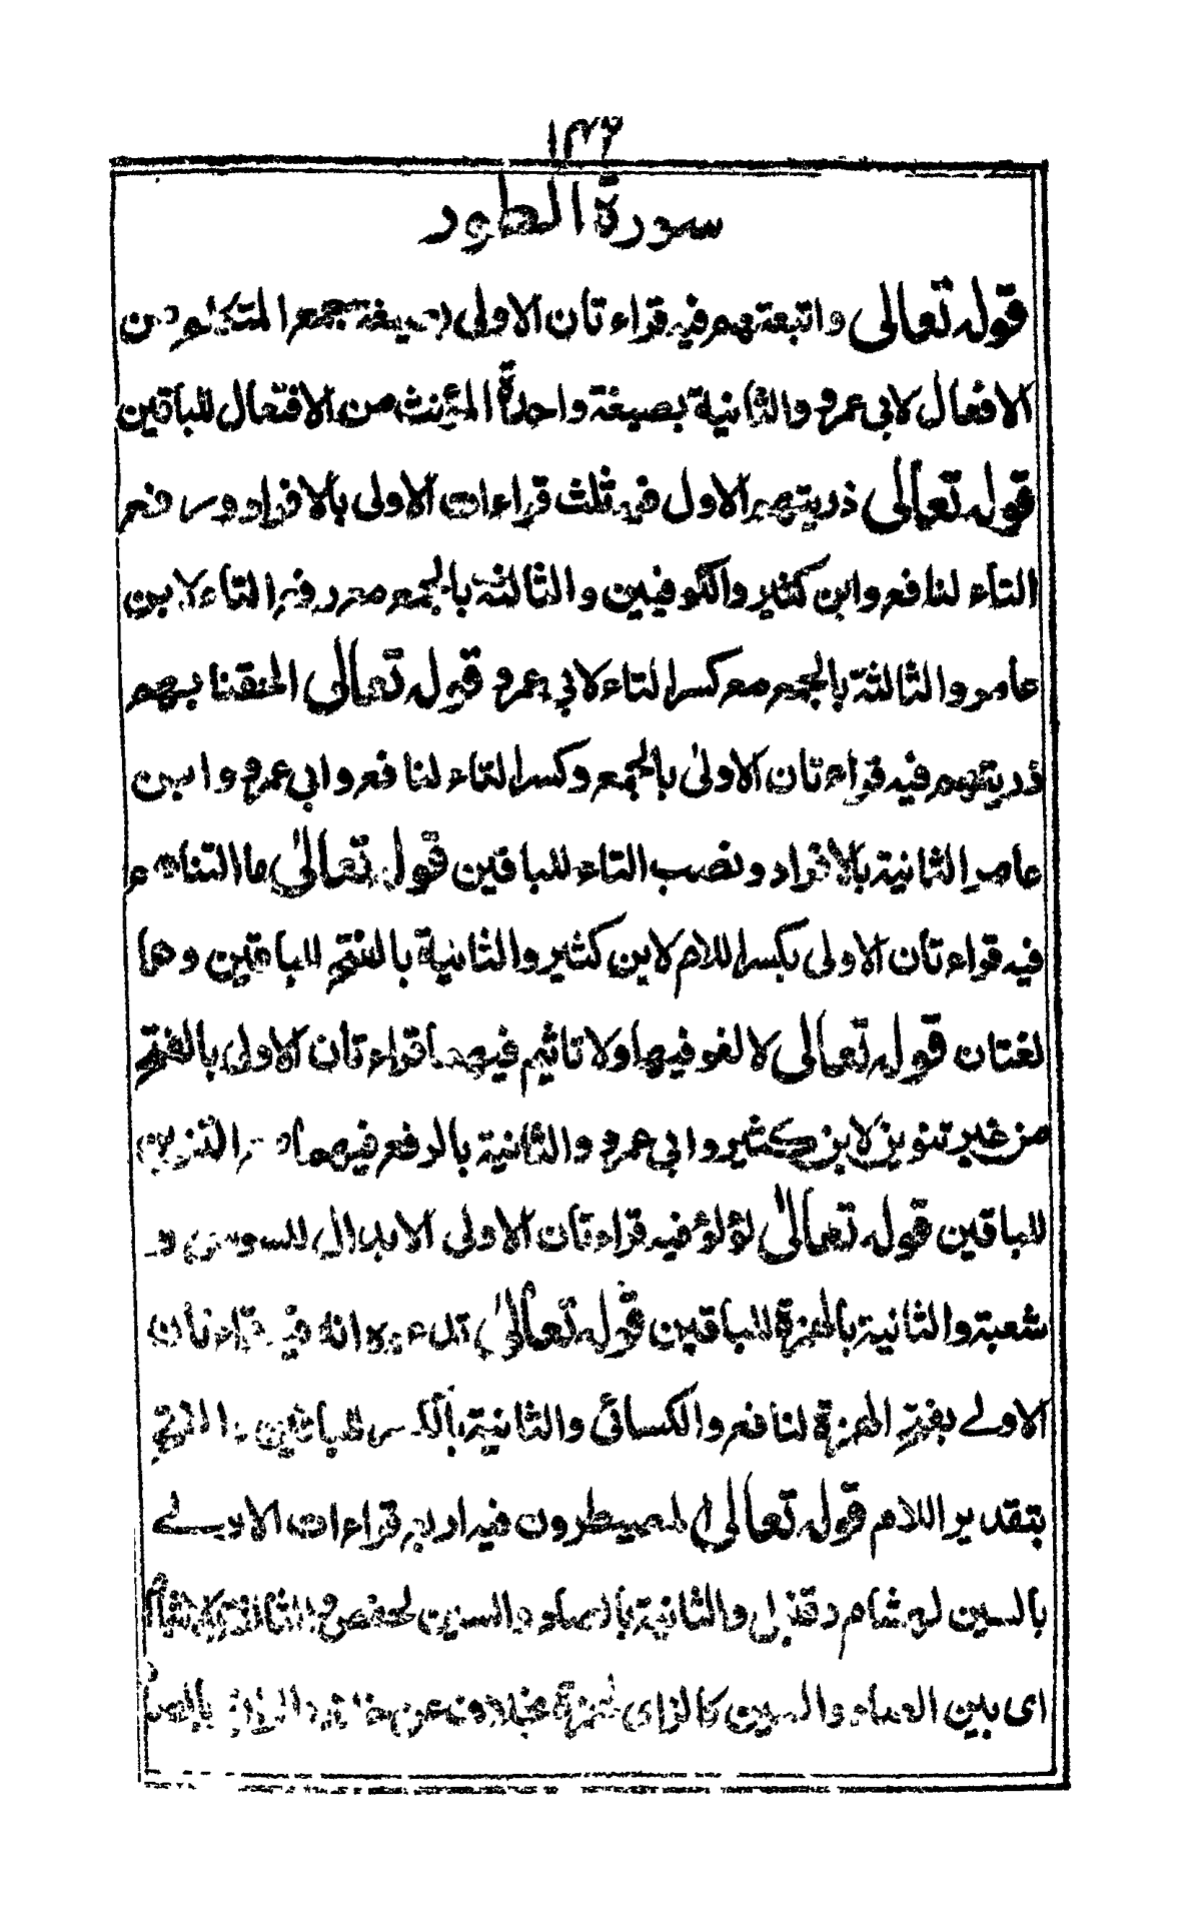 ١٣٦
سورة الطور
قوله تعالى واتبعتهم فيه قراءتان الاولى بصيغة جمع المتكلم من
الافعال لابي عمرو والثانية بصيغة واحدة المؤنث من الافتعال للباقين
قوله تعالى ذريتهم الاول فيه ثلث قراءات الاولى بالافراد ورفع
التاء لنافع وابن كثير والكوفيين والثالثة بالجمع مع رفع التاء لابن
عامر والثالثة بالجمع مع كسر التاء لابي عمرو قوله تعالى الحقنا بهم
ذريتهم فيه قراءتان الاولىٰ بالجمع وكسر التاء لنافع وابي عمرو وابن
عامر الثانية بالافراد ونصب التاء للباقين قوله تعالىٰ ما التناهم
فيه قراءتان الاولى بكسر اللام لابن كثير والثانية بالفتح للباقين وهما
لغتان قوله تعالى لا لغو فيها ولا تاثيم فيهما قراءتان الاولى بالفتح
من غير تنوين لابن كثير وابي عمرو والثانية بالرفع فيهما مع التنوين
للباقين قوله تعالىٰ لؤلؤ فيه قراءتان الاولى الابدال للسوسي و
شعبة والثانية بالهمزة للباقين قوله تعالىٰ ندعوه انه فيه قراءتان
الاولے بفتح الهمزة لنافع والكسائى والثانية بالكسر للباقين والفتح
بتقدير اللام قوله تعالىٰ المصيطرون فيه اربع قراءات الاولے
بالسين لهشام وقنبل والثانية بالصاد والسين لحفص والثالثة بالاشمام
اى بين الصاد والسين كالزاى لحمزة بخلاف عن خلاد والرابعة بالصاد